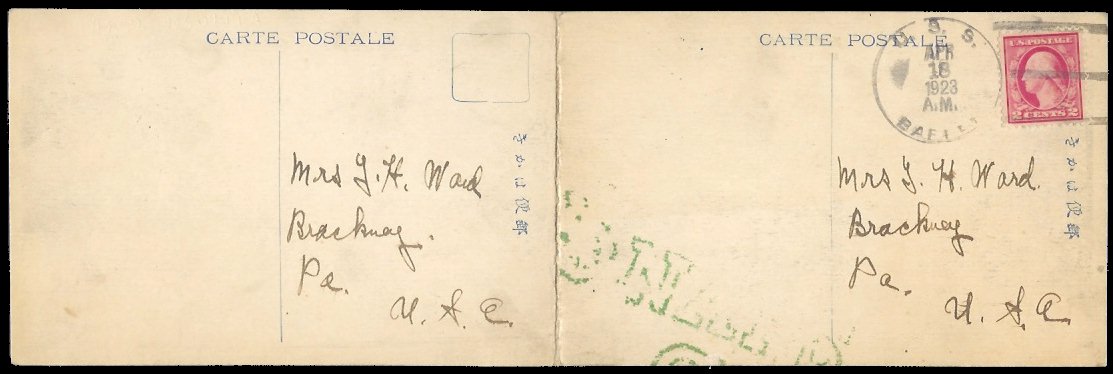 CARTE POSTALE
きかは便郵
Mrs J. H. Ward
Brackney.
Pa.
U. S. A.
CARTE POSTALE
U. S. S.
APR
18
1923
A.M.
U.S. POSTAGE
2 CENTS 2
きかは便郵
Mrs J. H. Ward.
Brackney
Pa.
U. S. A.